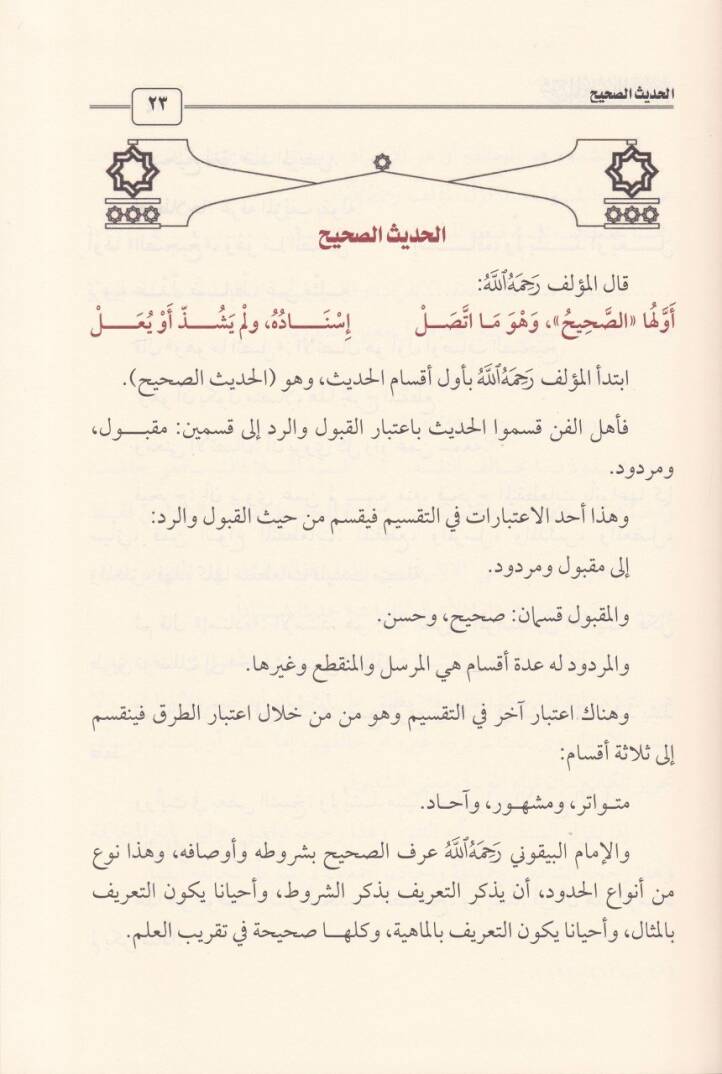 الحديث الصحيح
٢٣
الحديث الصحيح
قال المؤلف رَحِمَهُ ٱللَّهُ:
أَوَّلُهَا «الصَّحِيحُ»، وَهْوَ مَا اتَّصَلْ إِسْنَادُهُ، ولْم يَشُذّ أَوْ يُعَلْ
ابتدأ المؤلف رَحِمَهُ ٱللَّهُ بأول أقسام الحديث، وهو (الحديث الصحيح).
فأهل الفن قسموا الحديث باعتبار القبول والرد إلى قسمين: مقبول،
ومردود.
وهذا أحد الاعتبارات في التقسيم فيقسم من حيث القبول والرد:
إلى مقبول ومردود.
والمقبول قسمان: صحيح، وحسن.
والمردود له عدة أقسام هي المرسل والمنقطع وغيرها.
وهناك اعتبار آخر في التقسيم وهو من من خلال اعتبار الطرق فينقسم
إلى ثلاثة أقسام:
متواتر، ومشهور، وآحاد.
والإمام البيقوني رَحِمَهُ ٱللَّهُ عرف الصحيح بشروطه وأوصافه، وهذا نوع
من أنواع الحدود، أن يذكر التعريف بذكر الشروط، وأحيانا يكون التعريف
بالمثال، وأحيانا يكون التعريف بالماهية، وكلها صحيحة في تقريب العلم.